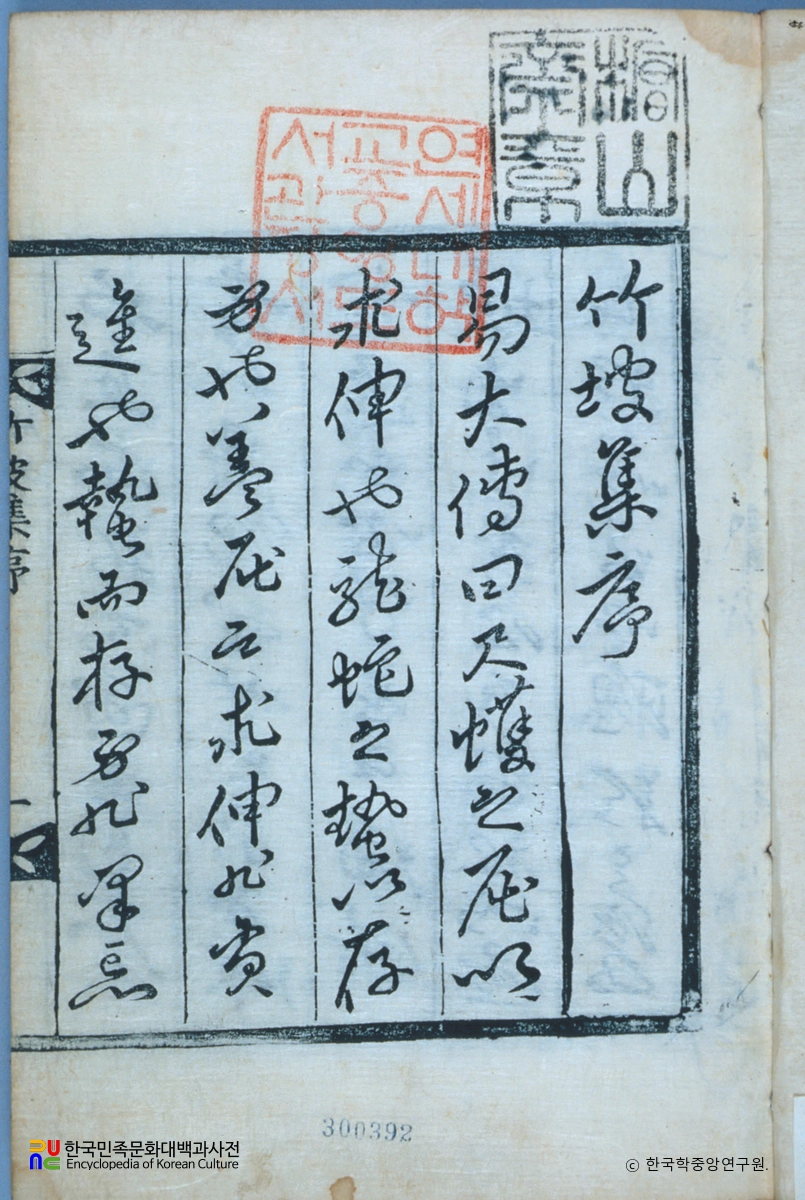 竹坡集序
易大傳曰尺蠖之屈以
求伸也龍蛇之蟄以存
身也蓋屈求伸非貪
進也蟄而存身非果忘
竹坡集序
一
연세대학
교중앙도
서관장서
山
章
300392
한국민족문화대백과사전
Encyclopedia of Korean Culture
ⓒ 한국학중앙연구원.